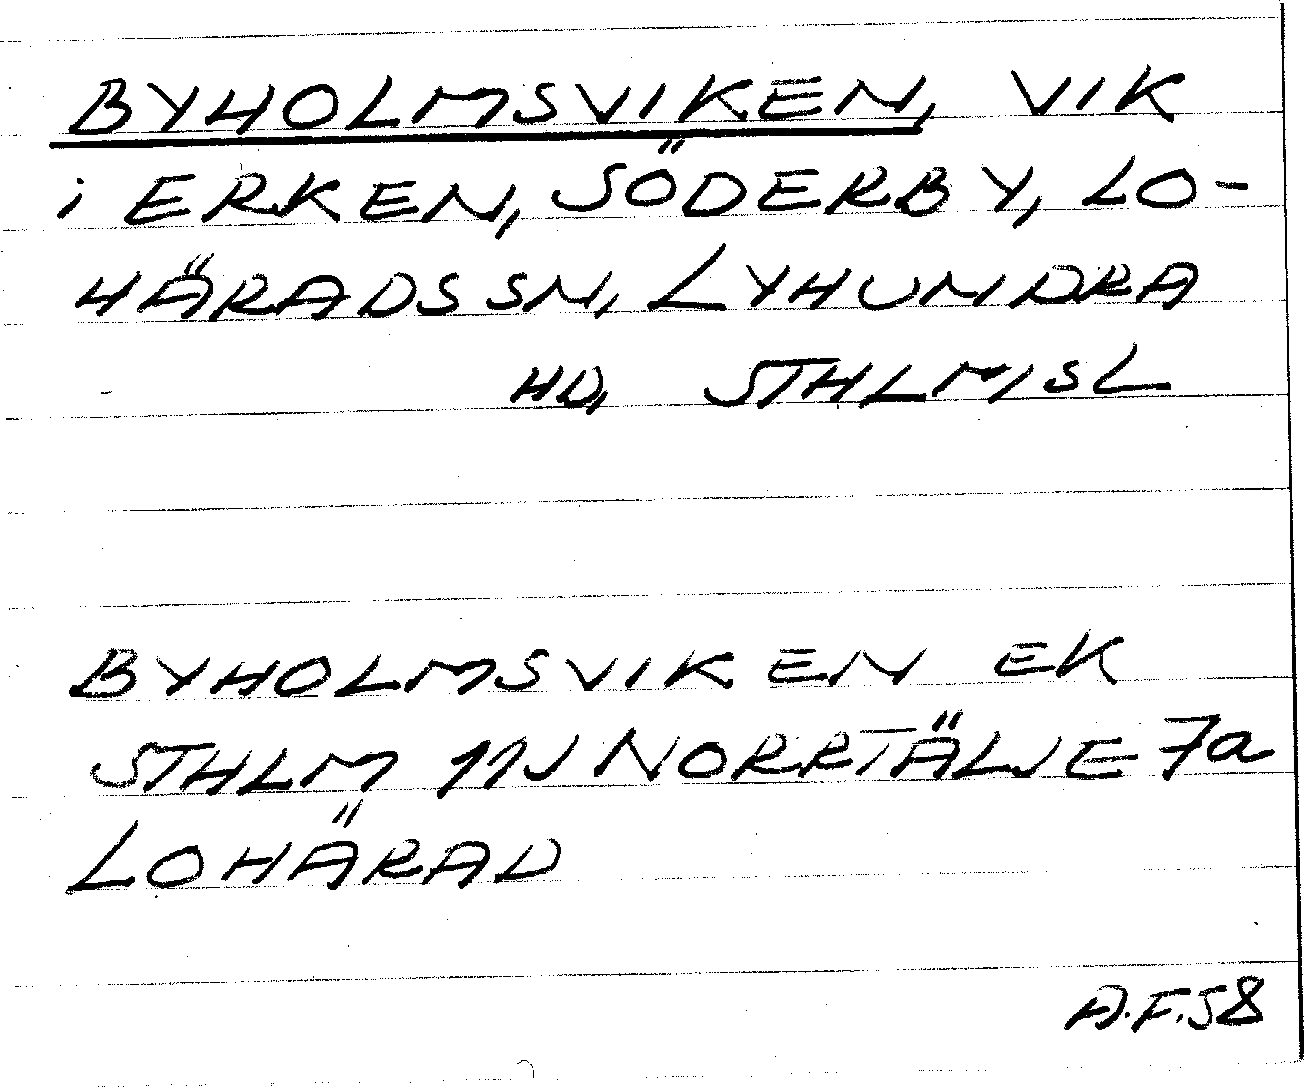 BYHOLMSVIKEN, VIK
i ERKEN, SÖDERBY, LO-
HÄRADS SN, LYHUNDRA
HD, STHLMS L
BYHOLMSVIKEN EK
STHLM 11J NORRTÄLJE 7a
LOHÄRAD
A.F.58